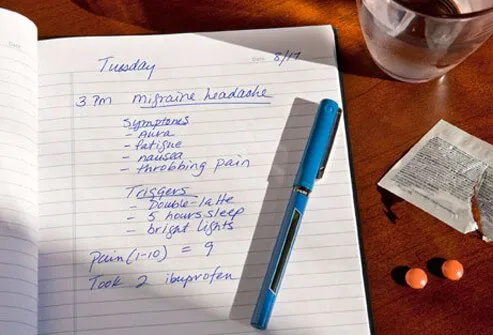 Date
Tuesday
Date 8/17
3 PM migraine headache
Symptoms
- Aura
- fatigue
- nausea
- throbbing pain
Triggers
- Double-latte
- 5 hours sleep
- bright lights
Pain (1-10) = 9
Took 2 ibuprofen